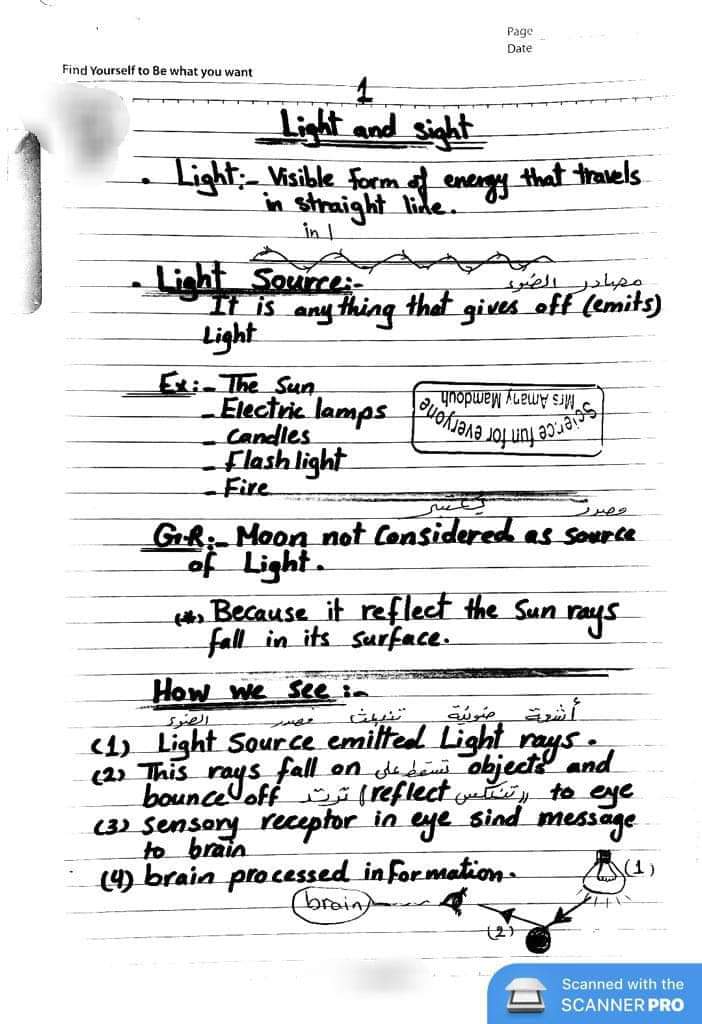 Page
Date
Find Yourself to Be what you want
1
Light and sight
• Light:- Visible form of energy that travels
in straight line.
in 1
مصادر الضوء
• Light Source:-
It is any thing that gives off (emits)
Light
Ex:- The Sun
- Electric lamps
- Candles
- Flash light
- Fire
Mrs Amany Mamdouh
Science fun for everyone
مصدر
G.R:- Moon not Considered as source
of Light.
(*) Because it reflect the Sun rays
fall in its surface.
How we see :-
أشعة ضوئية تنبعث مصدر الضوء
(1) Light Source emitted Light rays.
(2) This rays fall on تسقط على objects and
bounce off ترتد (reflect تنعكس) to eye
(3) sensory receptor in eye sind message
to brain
(4) brain processed information.
(1)
brain
(2)
Scanned with the
SCANNER PRO